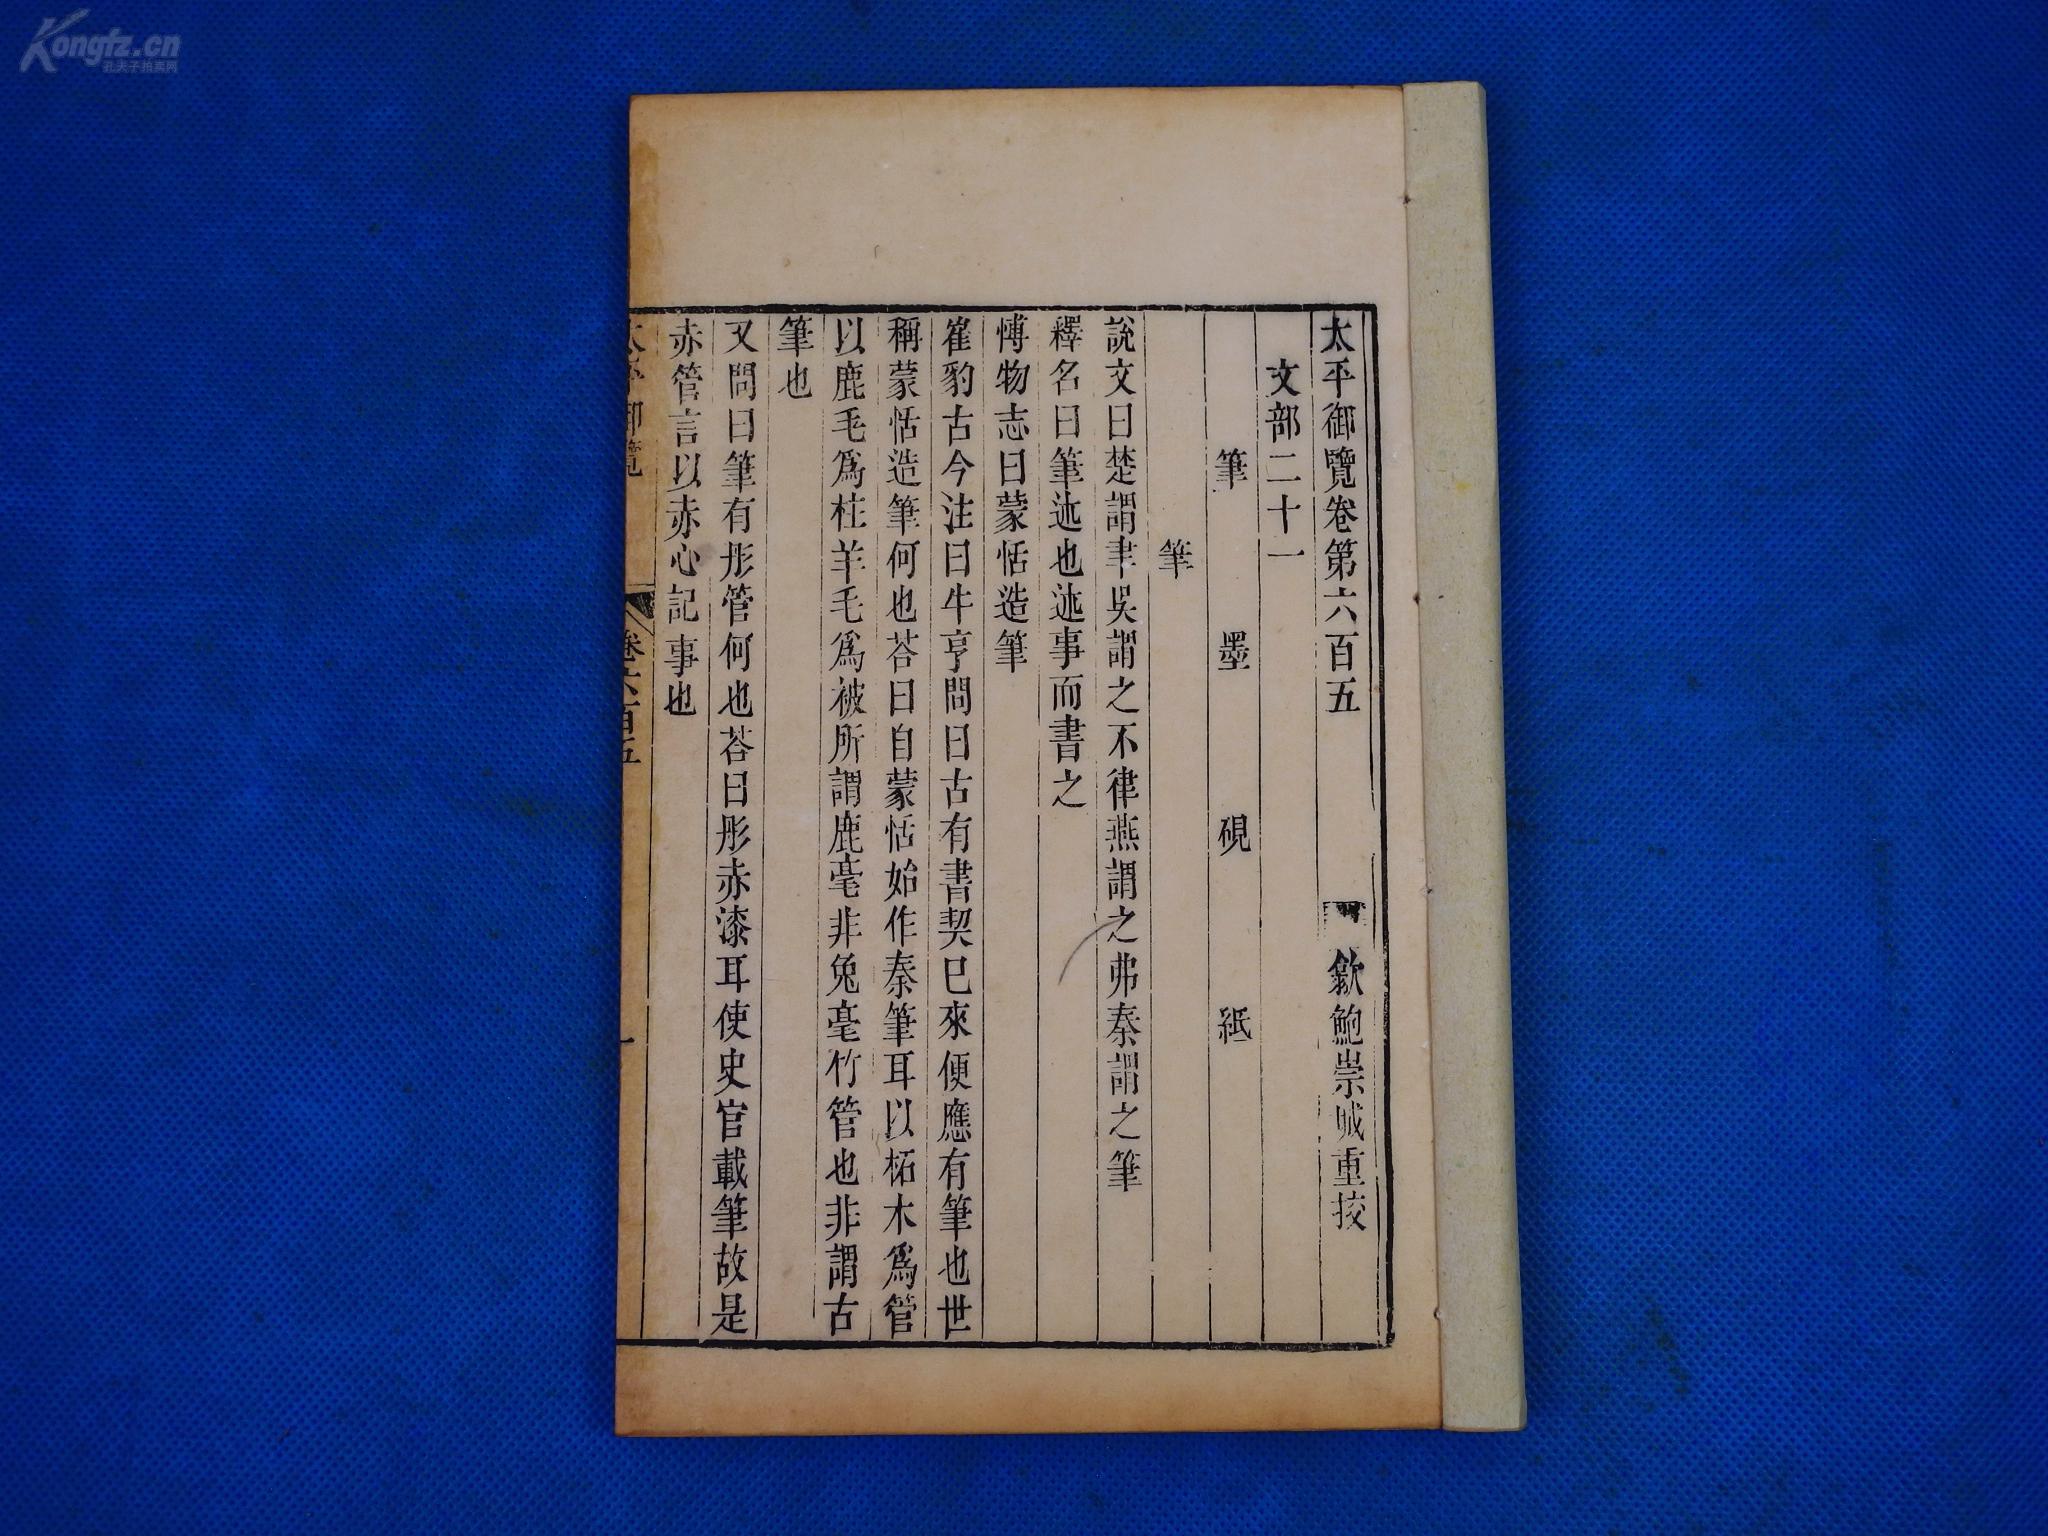 Kongfz.cn
孔夫子拍卖网
太平御覽卷第六百五 歙鮑崇城重挍
文部二十一
筆 墨 硯 紙
筆
說文曰楚謂聿吳謂之不律燕謂之弗秦謂之筆
釋名曰筆述也述事而書之
博物志曰蒙恬造筆
崔豹古今注曰牛亨問曰古有書契巳來便應有筆也世
稱蒙恬造筆何也荅曰自蒙恬始作秦筆耳以柘木爲管
以鹿毛爲柱羊毛爲被所謂鹿毫非兔毫竹管也非謂古
筆也
又問曰筆有彤管何也荅曰彤赤漆耳使史官載筆故是
赤管言以赤心記事也
太平御覽 卷六百五 一